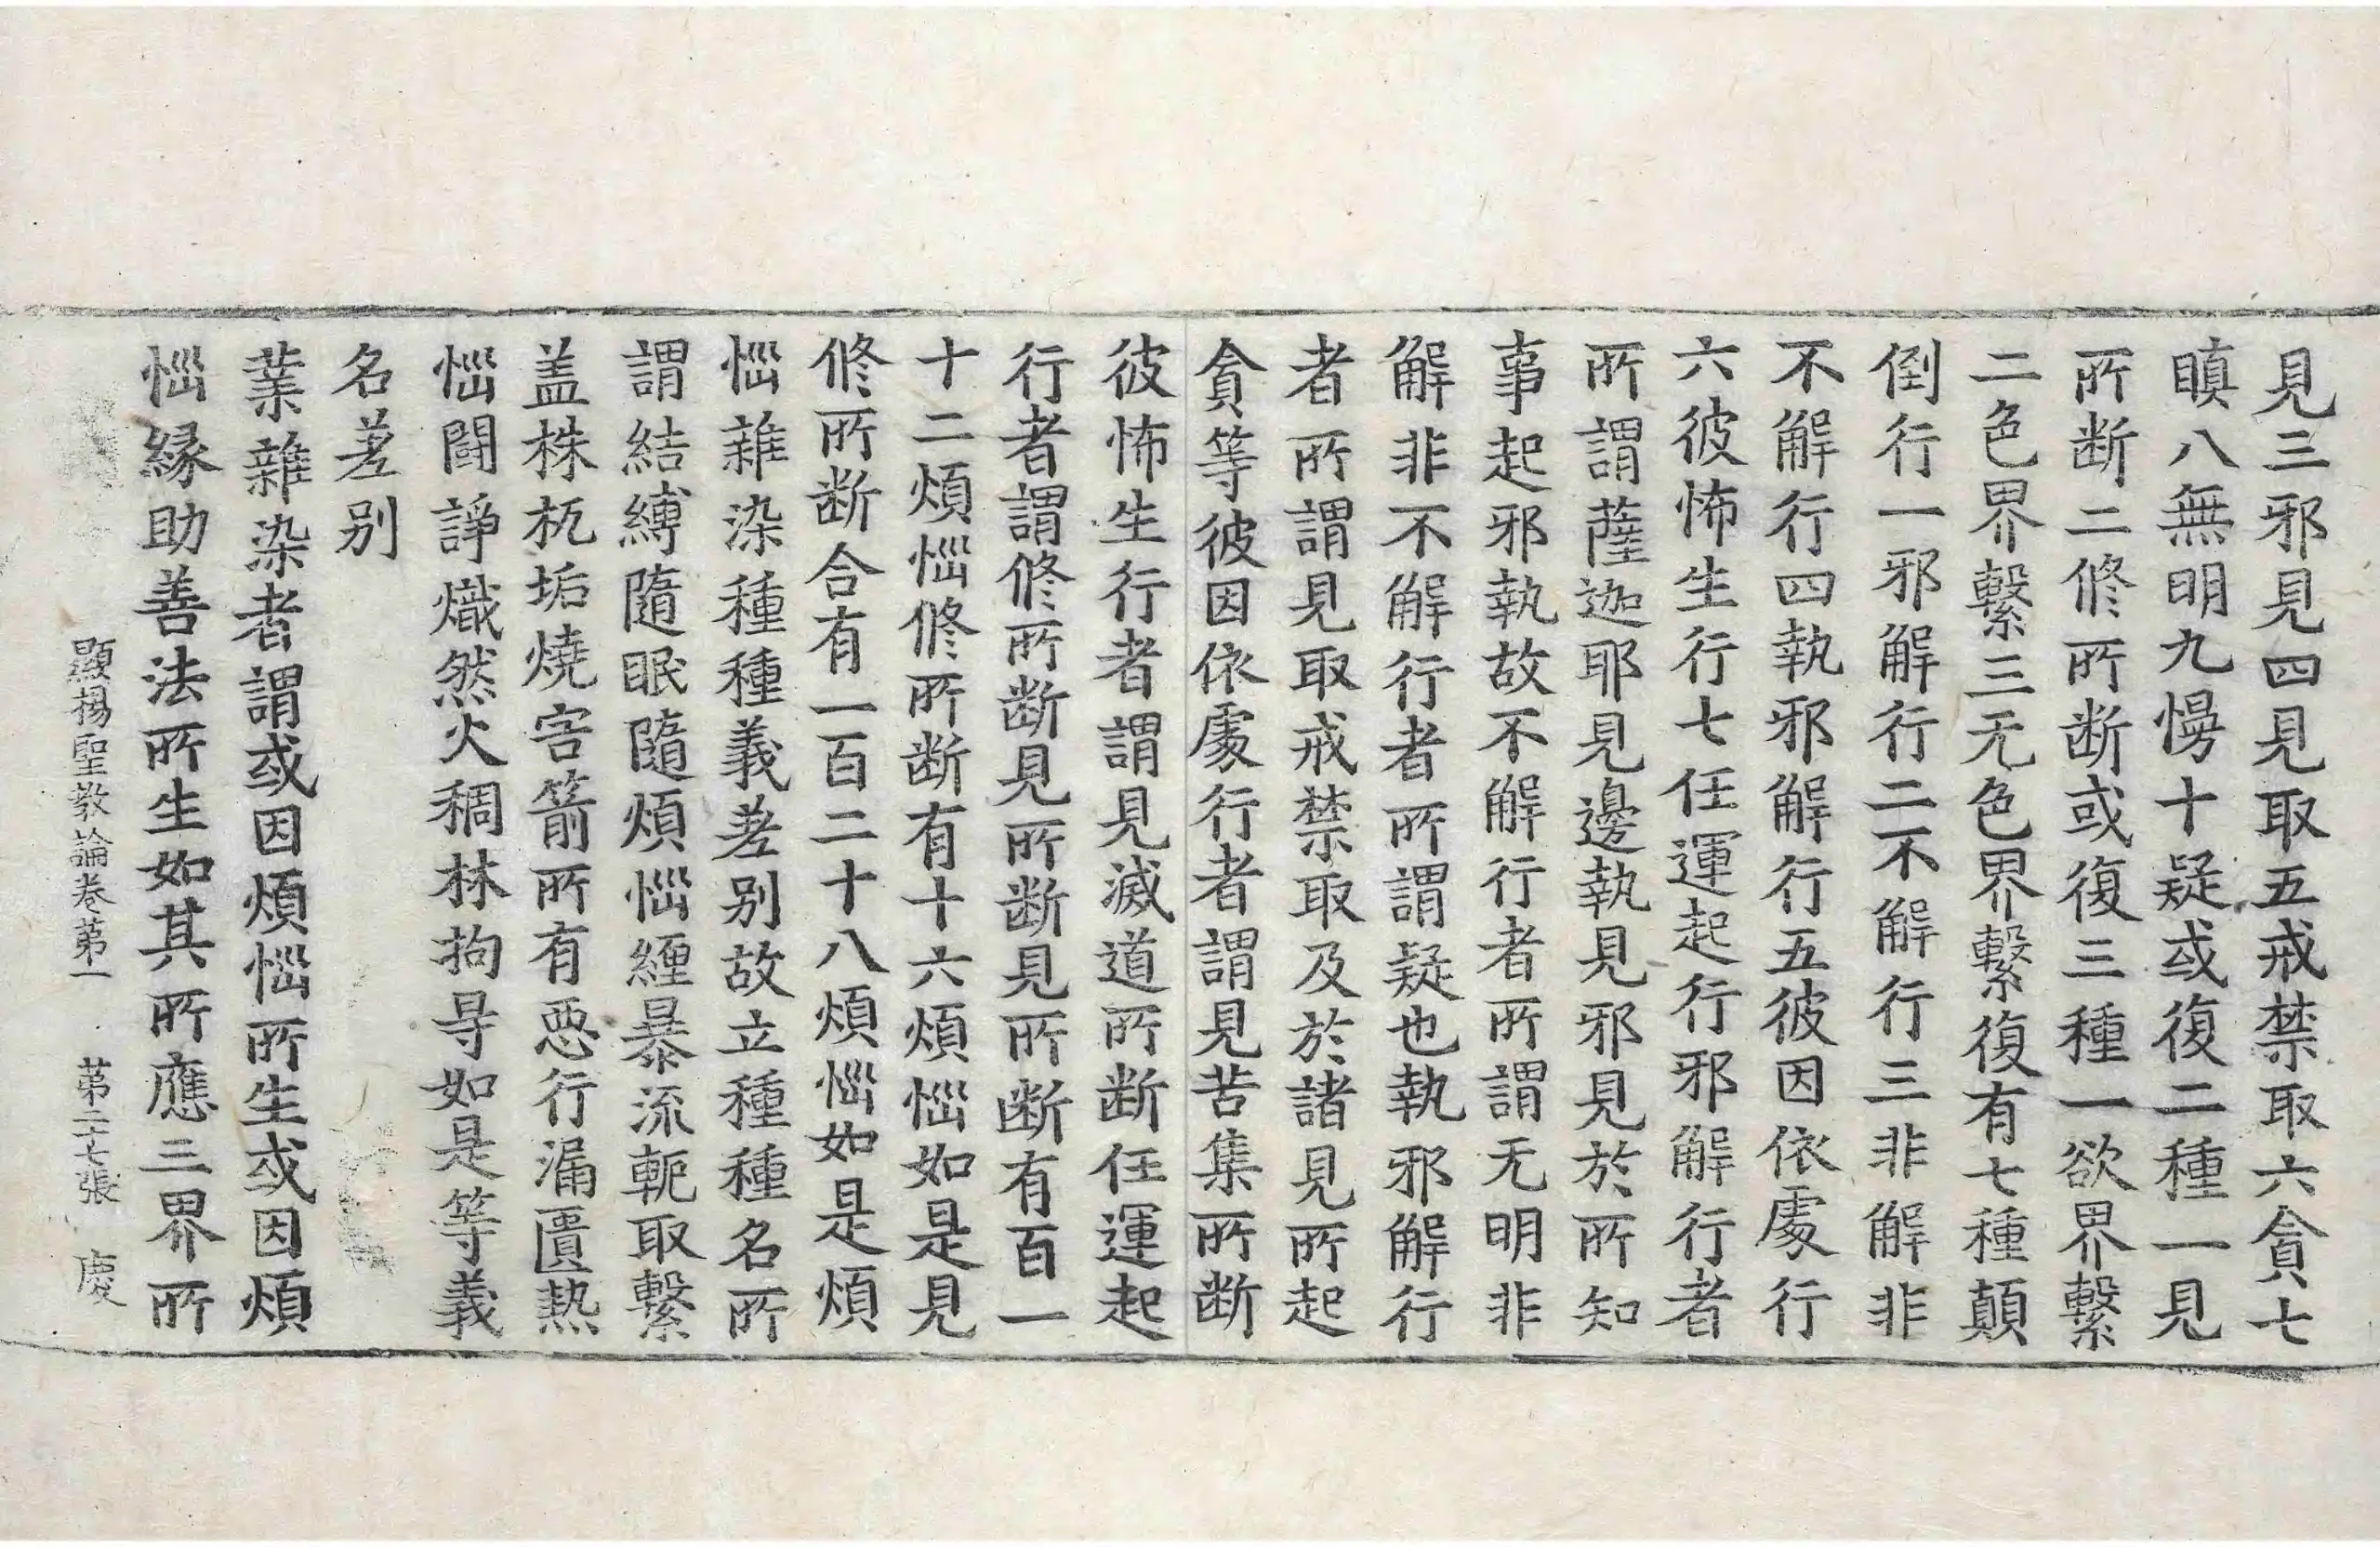 見三邪見四見取五戒禁取六貪七
瞋八無明九慢十疑或復二種一見
所断二修所断或復三種一欲界繫
二色界繫三无色界繫復有七種顛
倒行一邪解行二不解行三非解非
不解行四執邪解行五彼因依處行
六彼怖生行七任運起行邪解行者
所謂薩迦耶見邊執見邪見於所知
事起邪執故不解行者所謂无明非
解非不解行者所謂疑也執邪解行
者所謂見取戒禁取及於諸見所起
貪等彼因依處行者謂見苦集所断
彼怖生行者謂見滅道所断任運起
行者謂修所断見所断見所断有百一
十二煩惱修所断有十六煩惱如是見
修所断合有一百二十八煩惱如是煩
惱雜染種種義差别故立種種名所
謂結縛隨眠隨煩惱纏暴流軛取繫
盖株杌垢燒害箭所有惡行漏匱熱
惱鬪諍熾然火稠林拘㝵如是等義
名差别
業雜染者謂或因煩惱所生或因煩
惱緣助善法所生如其所應三界所
顯揚聖教論卷第一 第二十七張 慶